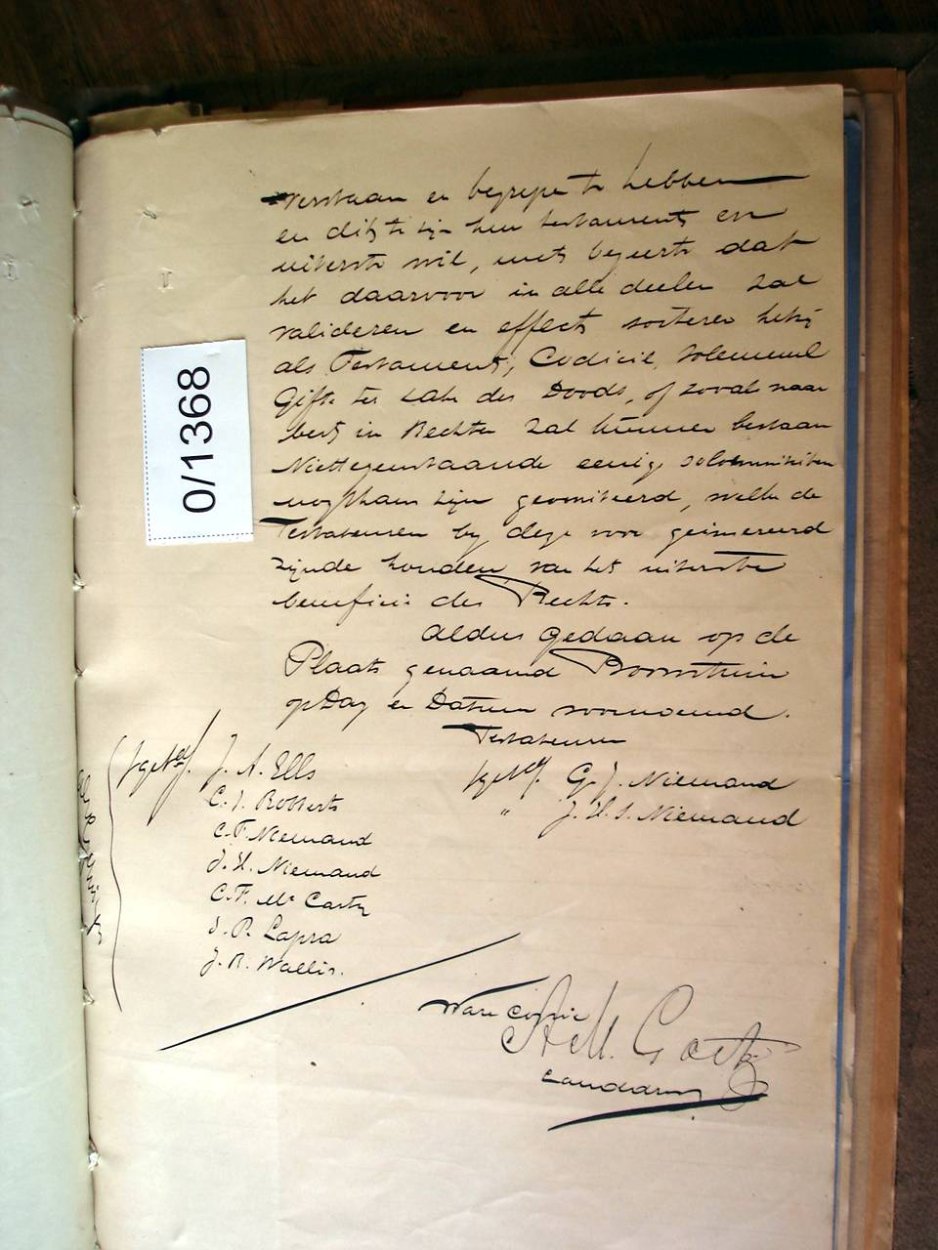 verstaan en begrepe te hebben
en dit te zijn hun testament en
uiterste wil, met begeerte dat
het daarvoor in alle deelen zal
valideren en effect sorteren hetzij
als Testament, Codicil,
Gifte ter Zake des Doods, of zooal naar
best in Rechten zal kunnen bestaan
Niettegenstaande eenige solemniteiten
mogtham zijn geomiteerd, welke de
Testateuren by deze voor geinsereerd
zijnde houden van het uiterste
beneficie des Rechts.
Aldus Gedaan op de
Plaats genaamd
op Dag en Datum voornoemd.
Testateuren
(get) G. J. Niemand
" J. H. S. Niemand
(get) J. A. Ells
C. J. Botterts
C. F. Niemand
J. H. Niemand
C. F. Mc Carty
J. P. Lapra
J. R. Wallis.
Ware Copie
A. M. Goetz
Landdrost
0/1368